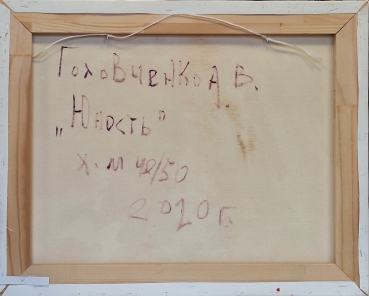 Головченко А.В.
„Юность"
х.м 40/50
2010 г.